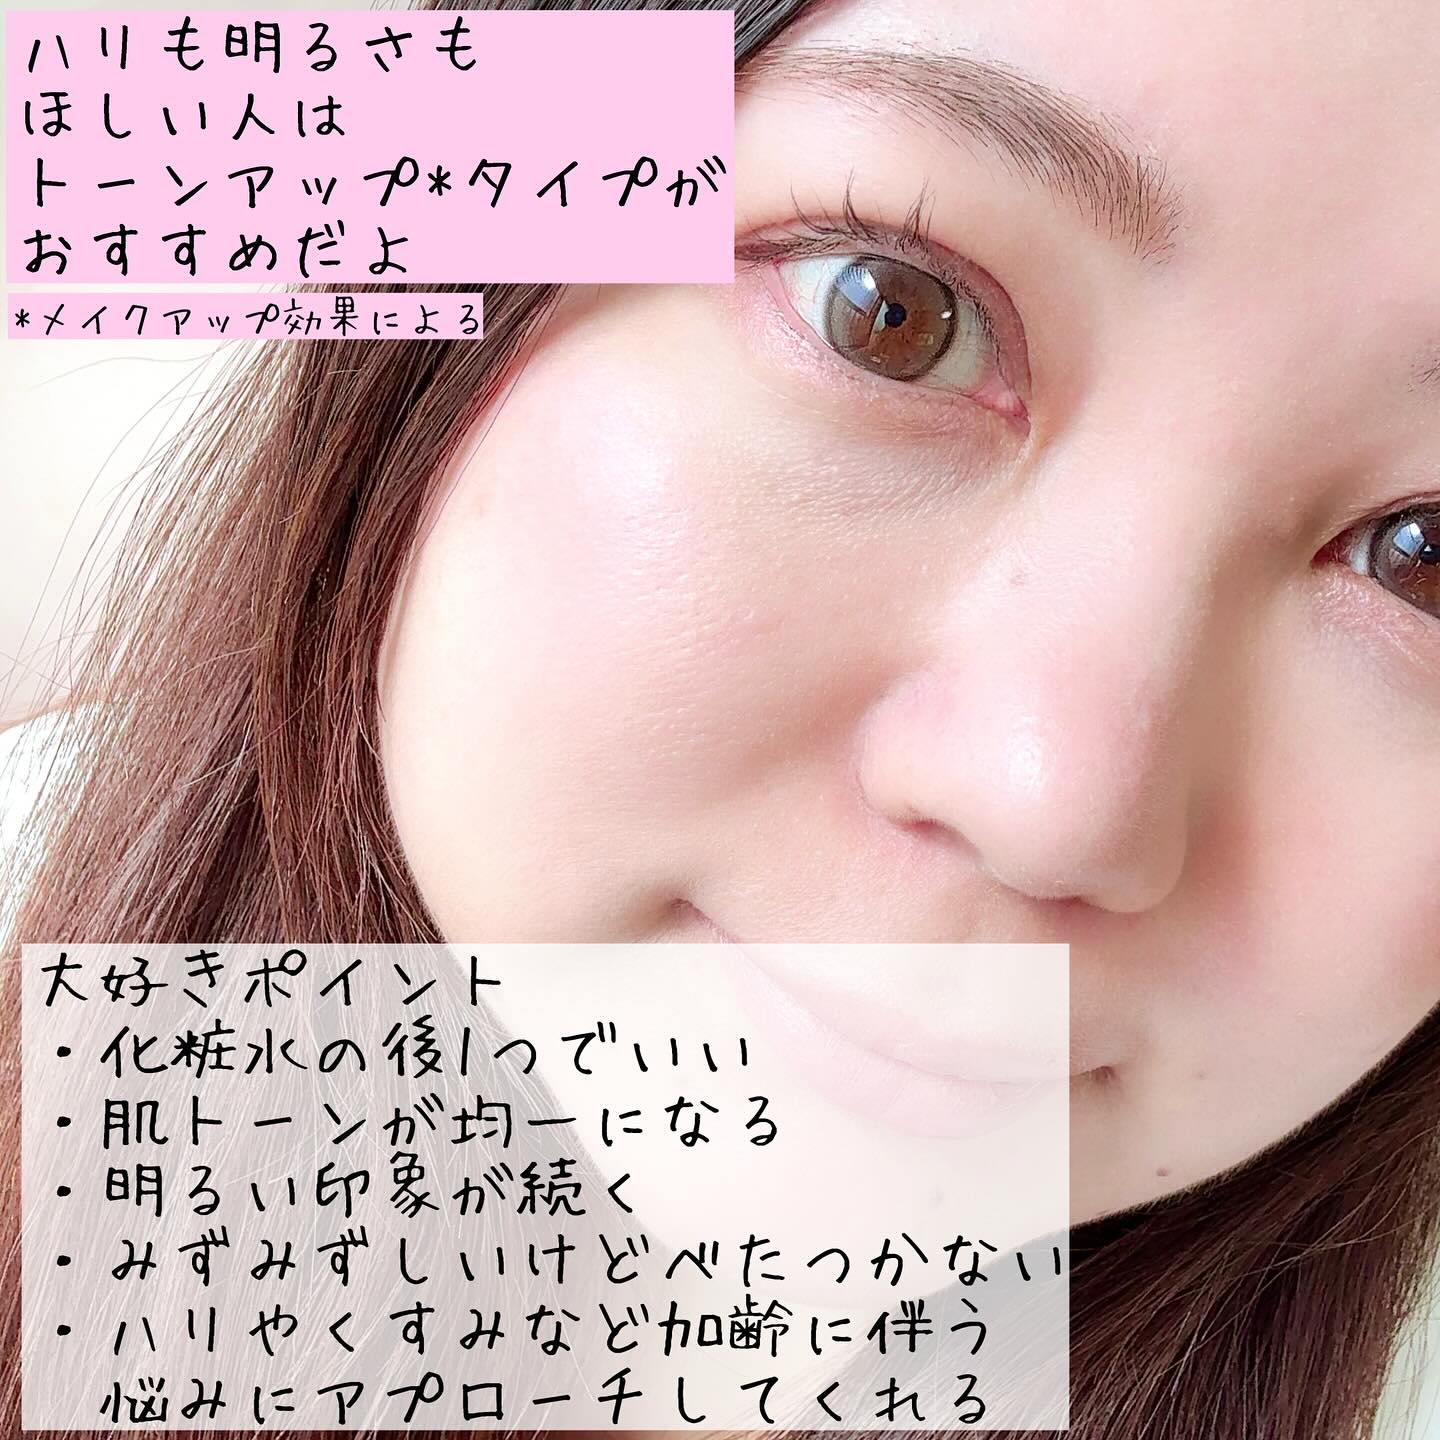 ハリも明るさも
ほしい人は
トーンアップ*タイプが
おすすめだよ
*メイクアップ効果による
大好きポイント
・化粧水の後1つでいい
・肌トーンが均一になる
・明るい印象が続く
・みずみずしいけどべたつかない
・ハリやくすみなど加齢に伴う
悩みにアプローチしてくれる